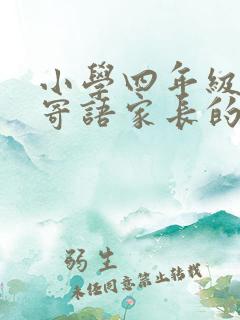 小學四年級
寄語家長的
弱生
未經同意禁止轉載